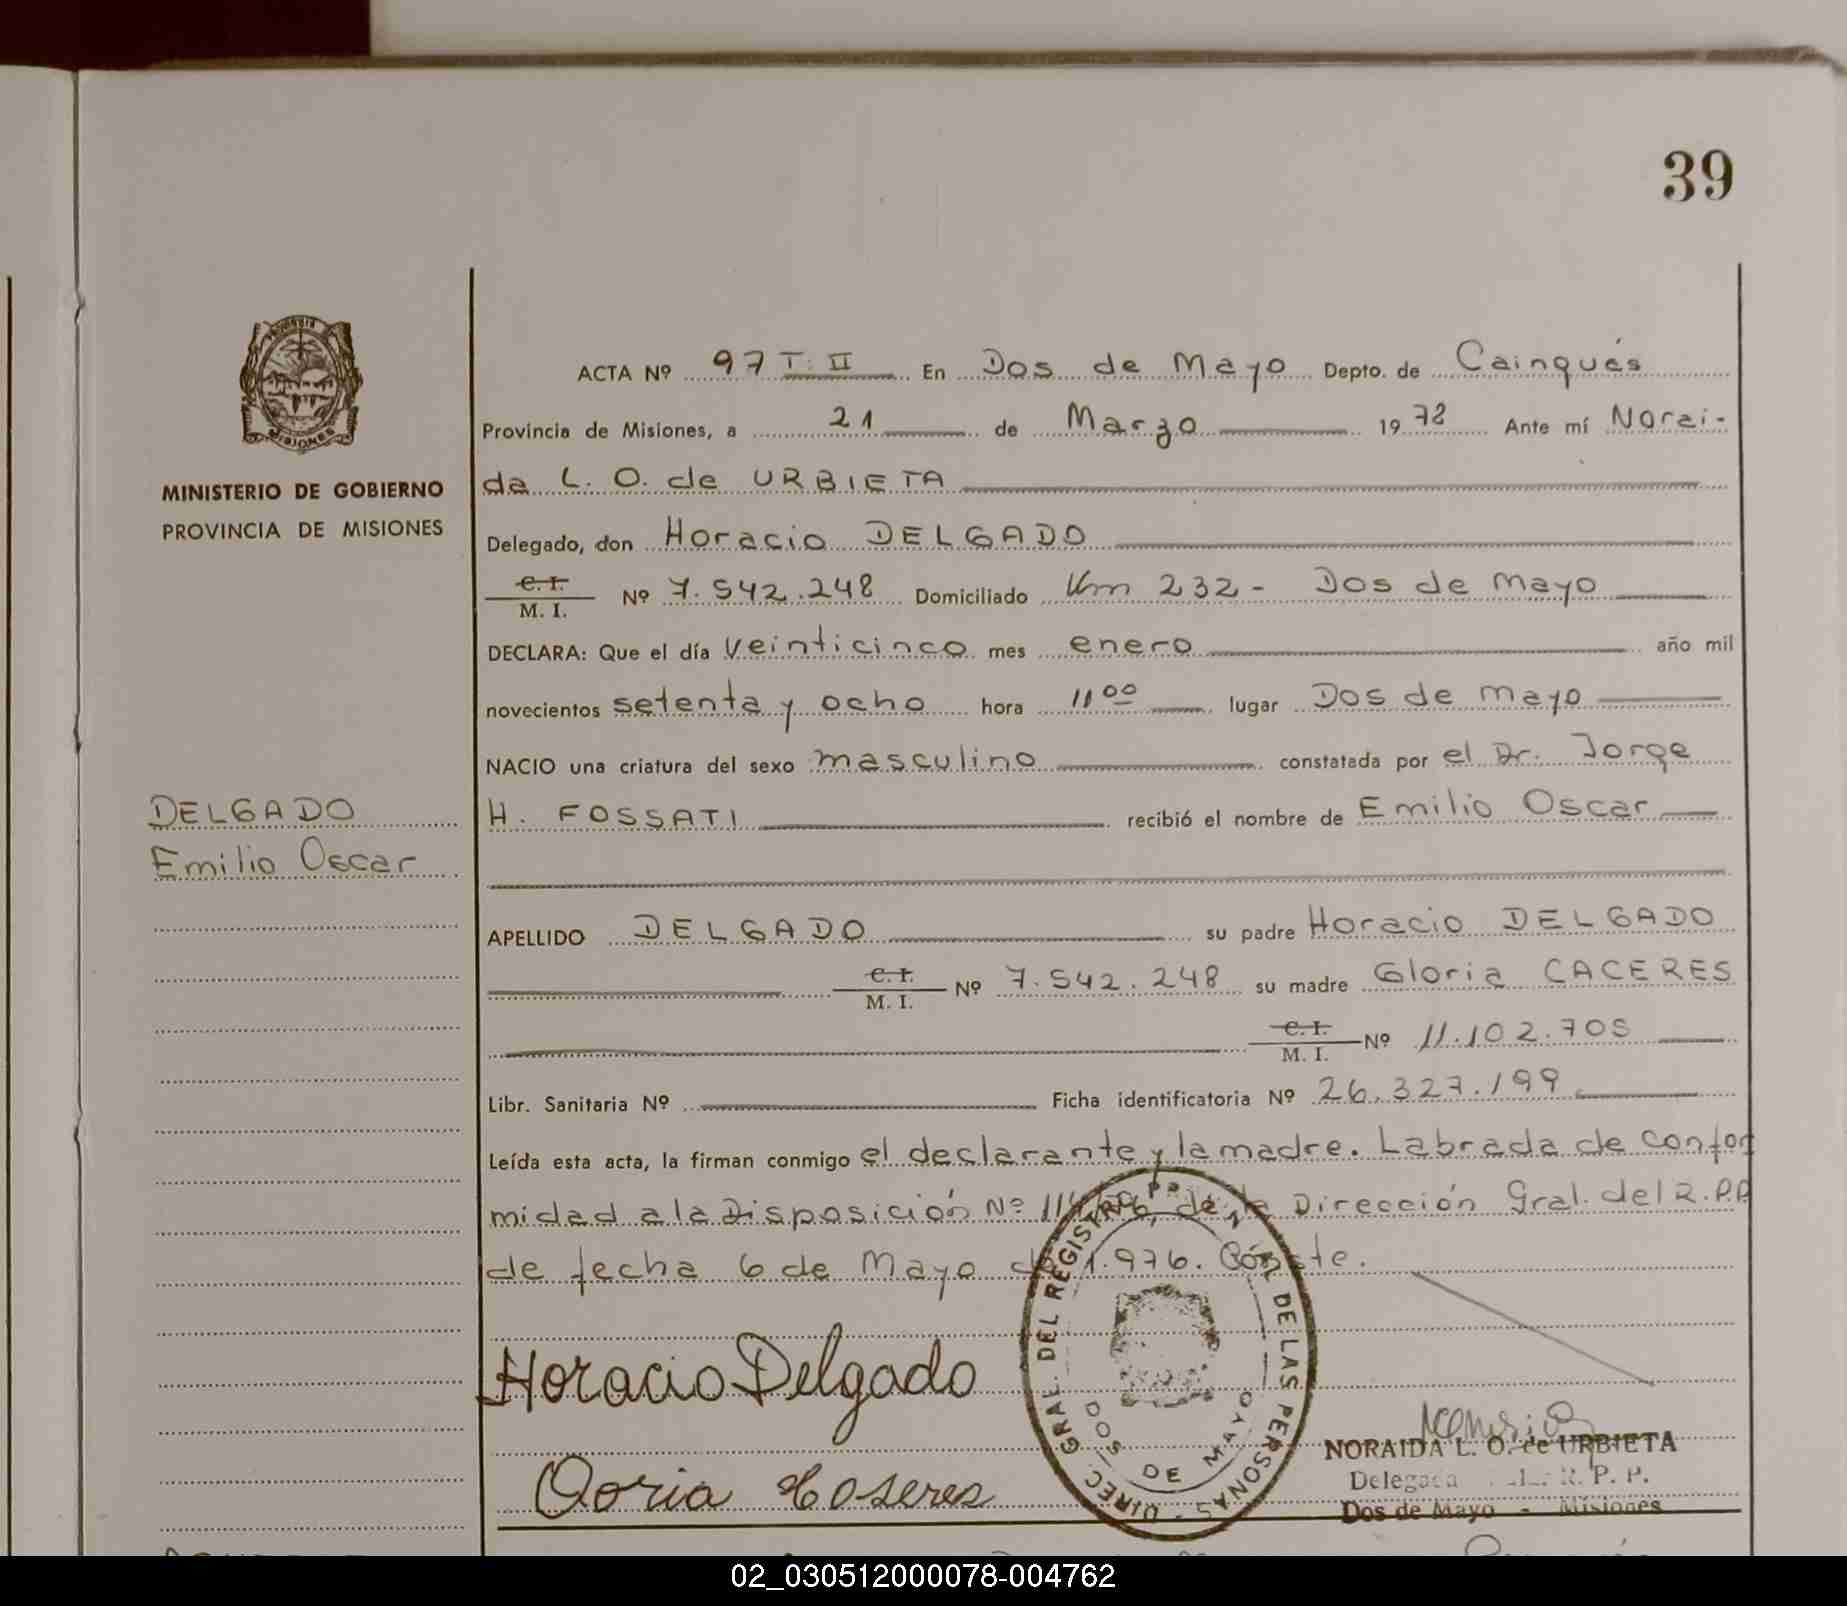 39
MISIONES
MINISTERIO DE GOBIERNO
PROVINCIA DE MISIONES
DELGADO
Emilio Oscar
ACTA Nº 97 T: II En Dos de Mayo Depto. de Cainguás
Provincia de Misiones, a 21 de Marzo 1978 Ante mí Norai-
da L. O. de URBIETA
Delegado, don Horacio DELGADO
C. I. M. I. Nº 7.542.248 Domiciliado Km 232 - Dos de Mayo
DECLARA: Que el día veinticinco mes enero año mil
novecientos setenta y ocho hora 11 00 lugar Dos de Mayo
NACIO una criatura del sexo masculino constatada por el Dr. Jorge
H. FOSSATI recibió el nombre de Emilio Oscar
APELLIDO DELGADO su padre Horacio DELGADO
C. I. M. I. Nº 7.542.248 su madre Gloria CACERES
C. I. M. I. Nº 11.102.705
Libr. Sanitaria Nº Ficha identificatoria Nº 26.327.199
Leída esta acta, la firman conmigo el declarante y la madre. Labrada de confor
midad a la Disposición Nº de la Dirección Gral. del R.P.P
de fecha 6 de Mayo de 1.976. Conste.
Horacio Delgado
DIREC. GRAL. DEL REGISTRO DE LAS PERSONAS
DOS DE MAYO
NORAIDA L. O. de URBIETA
Delegada R. P. P.
Dos de Mayo - Misiones
02_030512000078-004762